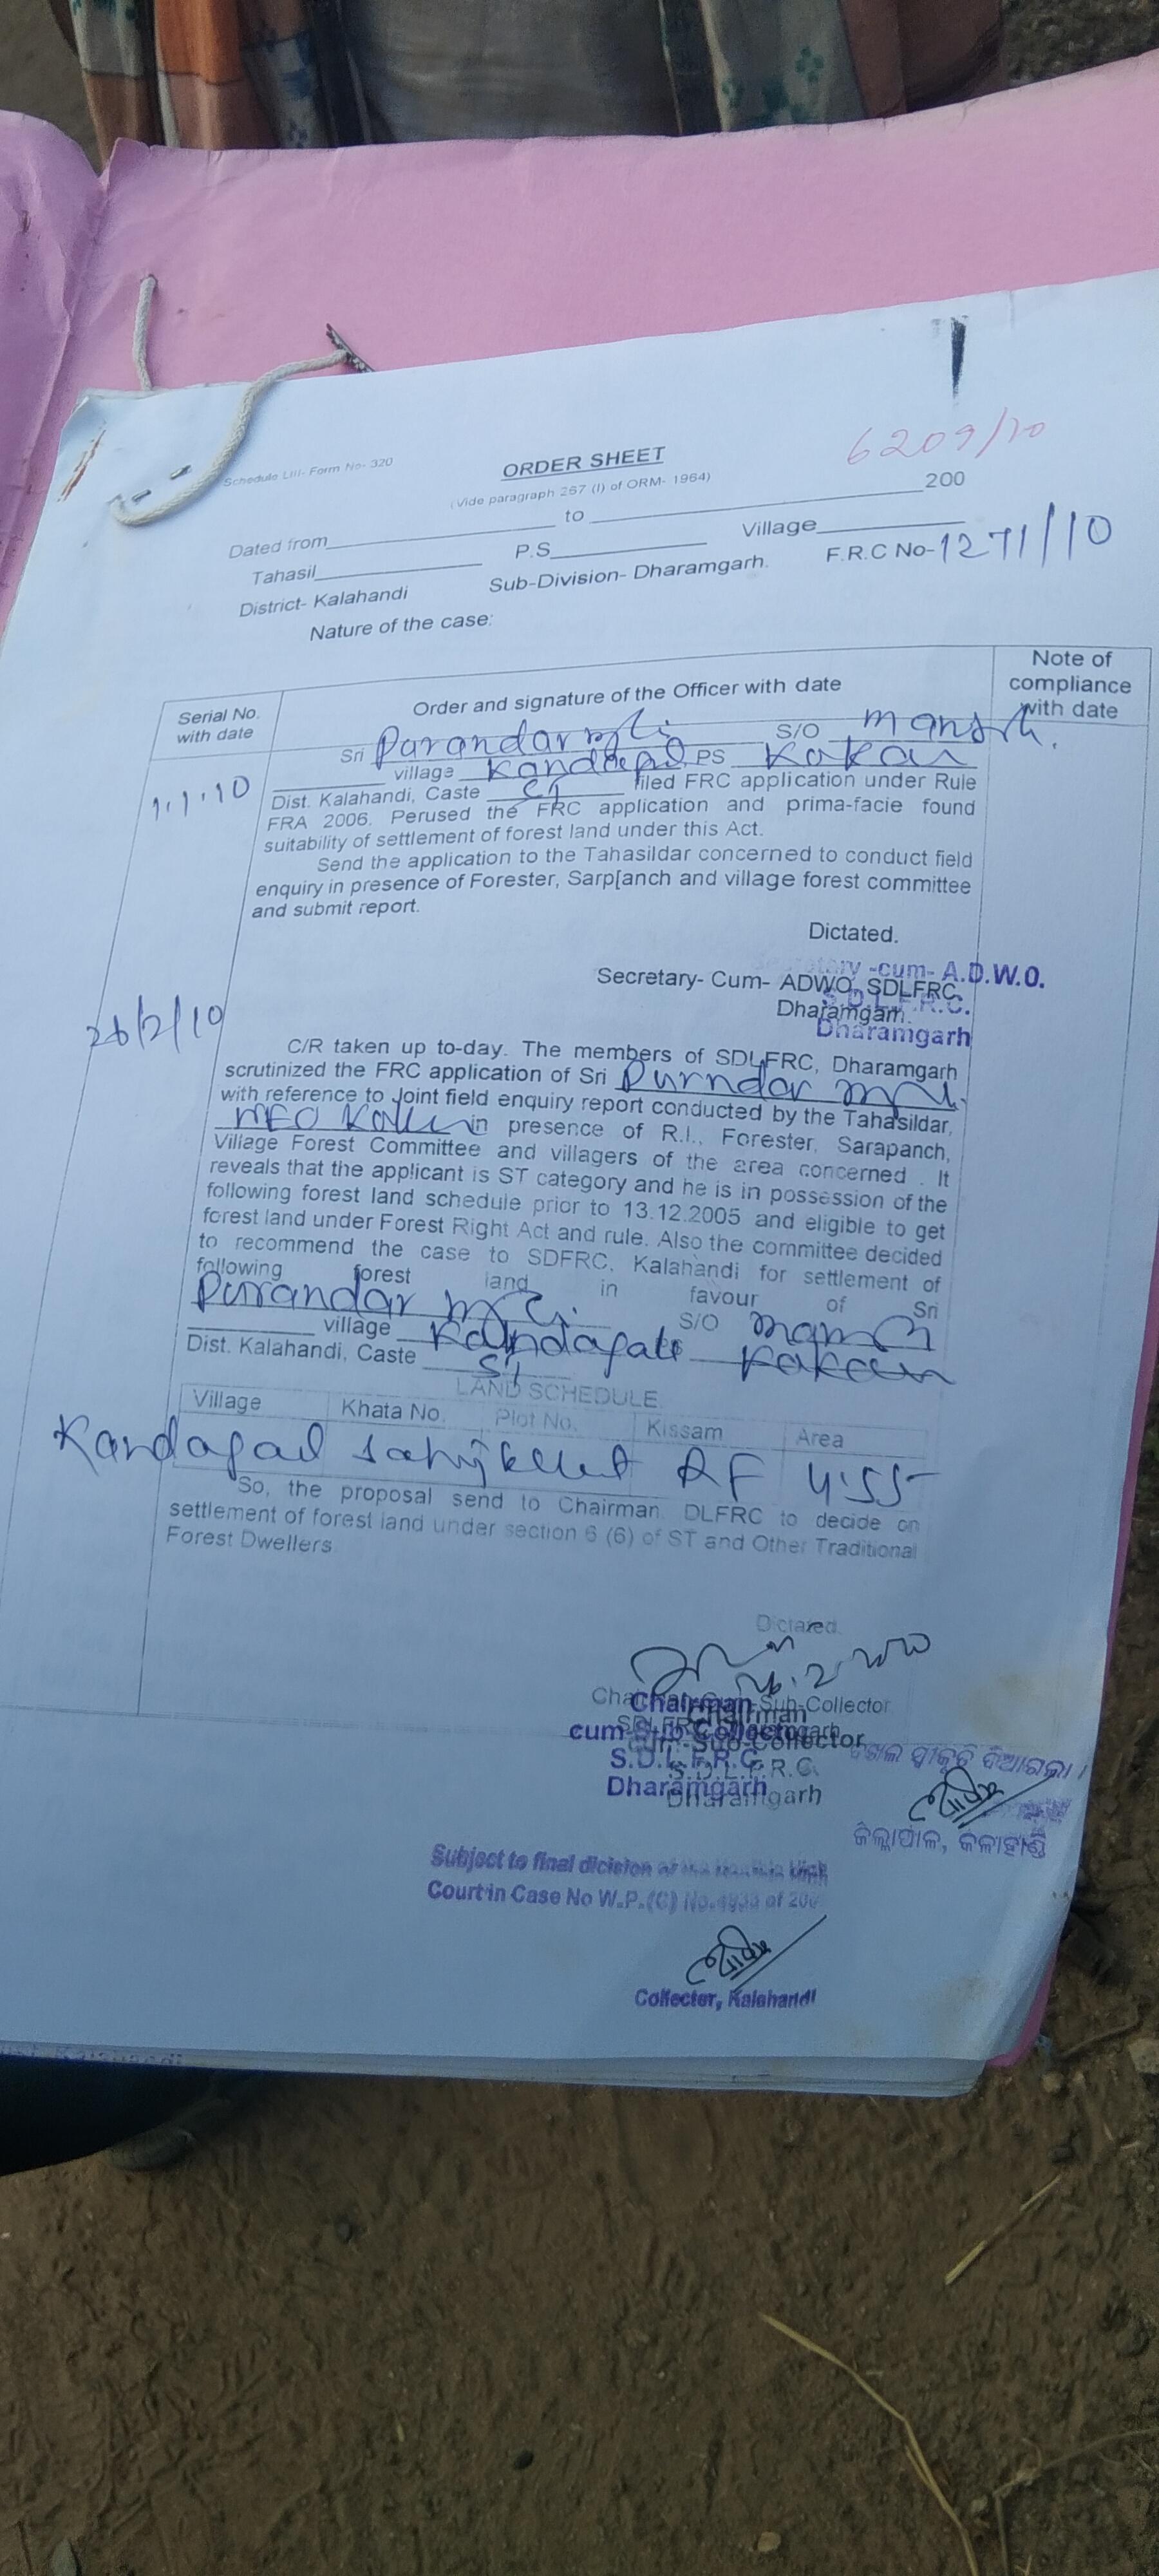 6209/10
Schedule LIII- Form No- 320
ORDER SHEET
(Vide paragraph 267 (I) of ORM- 1964)
Dated from____________ to ____________200
Tahasil____________ P.S____________ Village____________
District- Kalahandi Sub-Division- Dharamgarh. F.R.C No-1271/10
Nature of the case:
Serial No. with date
Order and signature of the Officer with date
Note of compliance with date
1.1.10
Sri Purandar S/O
village PS
Dist. Kalahandi, Caste filed FRC application under Rule
FRA 2006. Perused the FRC application and prima-facie found
suitability of settlement of forest land under this Act.
Send the application to the Tahasildar concerned to conduct field
enquiry in presence of Forester, Sarp[anch and village forest committee
and submit report.
Dictated.
Secretary-cum- A.D.W.O.
Secretary- Cum- ADWO, SDLFRC.
S.D.L.F.R.C.
Dharamgarh.
Dharamgarh
26/2/10
C/R taken up to-day. The members of SDLFRC, Dharamgarh
scrutinized the FRC application of Sri Purndar
with reference to Joint field enquiry report conducted by the Tahasildar,
in presence of R.I., Forester, Sarapanch,
Village Forest Committee and villagers of the area concerned . It
reveals that the applicant is ST category and he is in possession of the
following forest land schedule prior to 13.12.2005 and eligible to get
forest land under Forest Right Act and rule. Also the committee decided
to recommend the case to SDFRC, Kalahandi for settlement of
following forest land in favour of Sri
Purandar S/O
village
Dist. Kalahandi, Caste ST
LAND SCHEDULE.
Village Khata No. Plot No. Kissam Area
RF 4.55
So, the proposal send to Chairman DLFRC to decide on
settlement of forest land under section 6 (6) of ST and Other Traditional
Forest Dwellers
Dictated.
Chairman-Cum-Sub-Collector
SDLFRC, Dharamgarh
Chairman
cum-Sub-Collector
S.D.L.F.R.C.
Dharamgarh
Chairman
cum-Sub-Collector
S.D.L.F.R.C.
Dharamgarh
ସ୍ୱୀକୃତି ଦିଆଗଲା ।
ଜିଲ୍ଲାପାଳ, କଳାହାଣ୍ଡି
Subject to final dicision of the Hon'ble High
Court in Case No W.P.(C) No.4933 of 200
Collector, Kalahandi